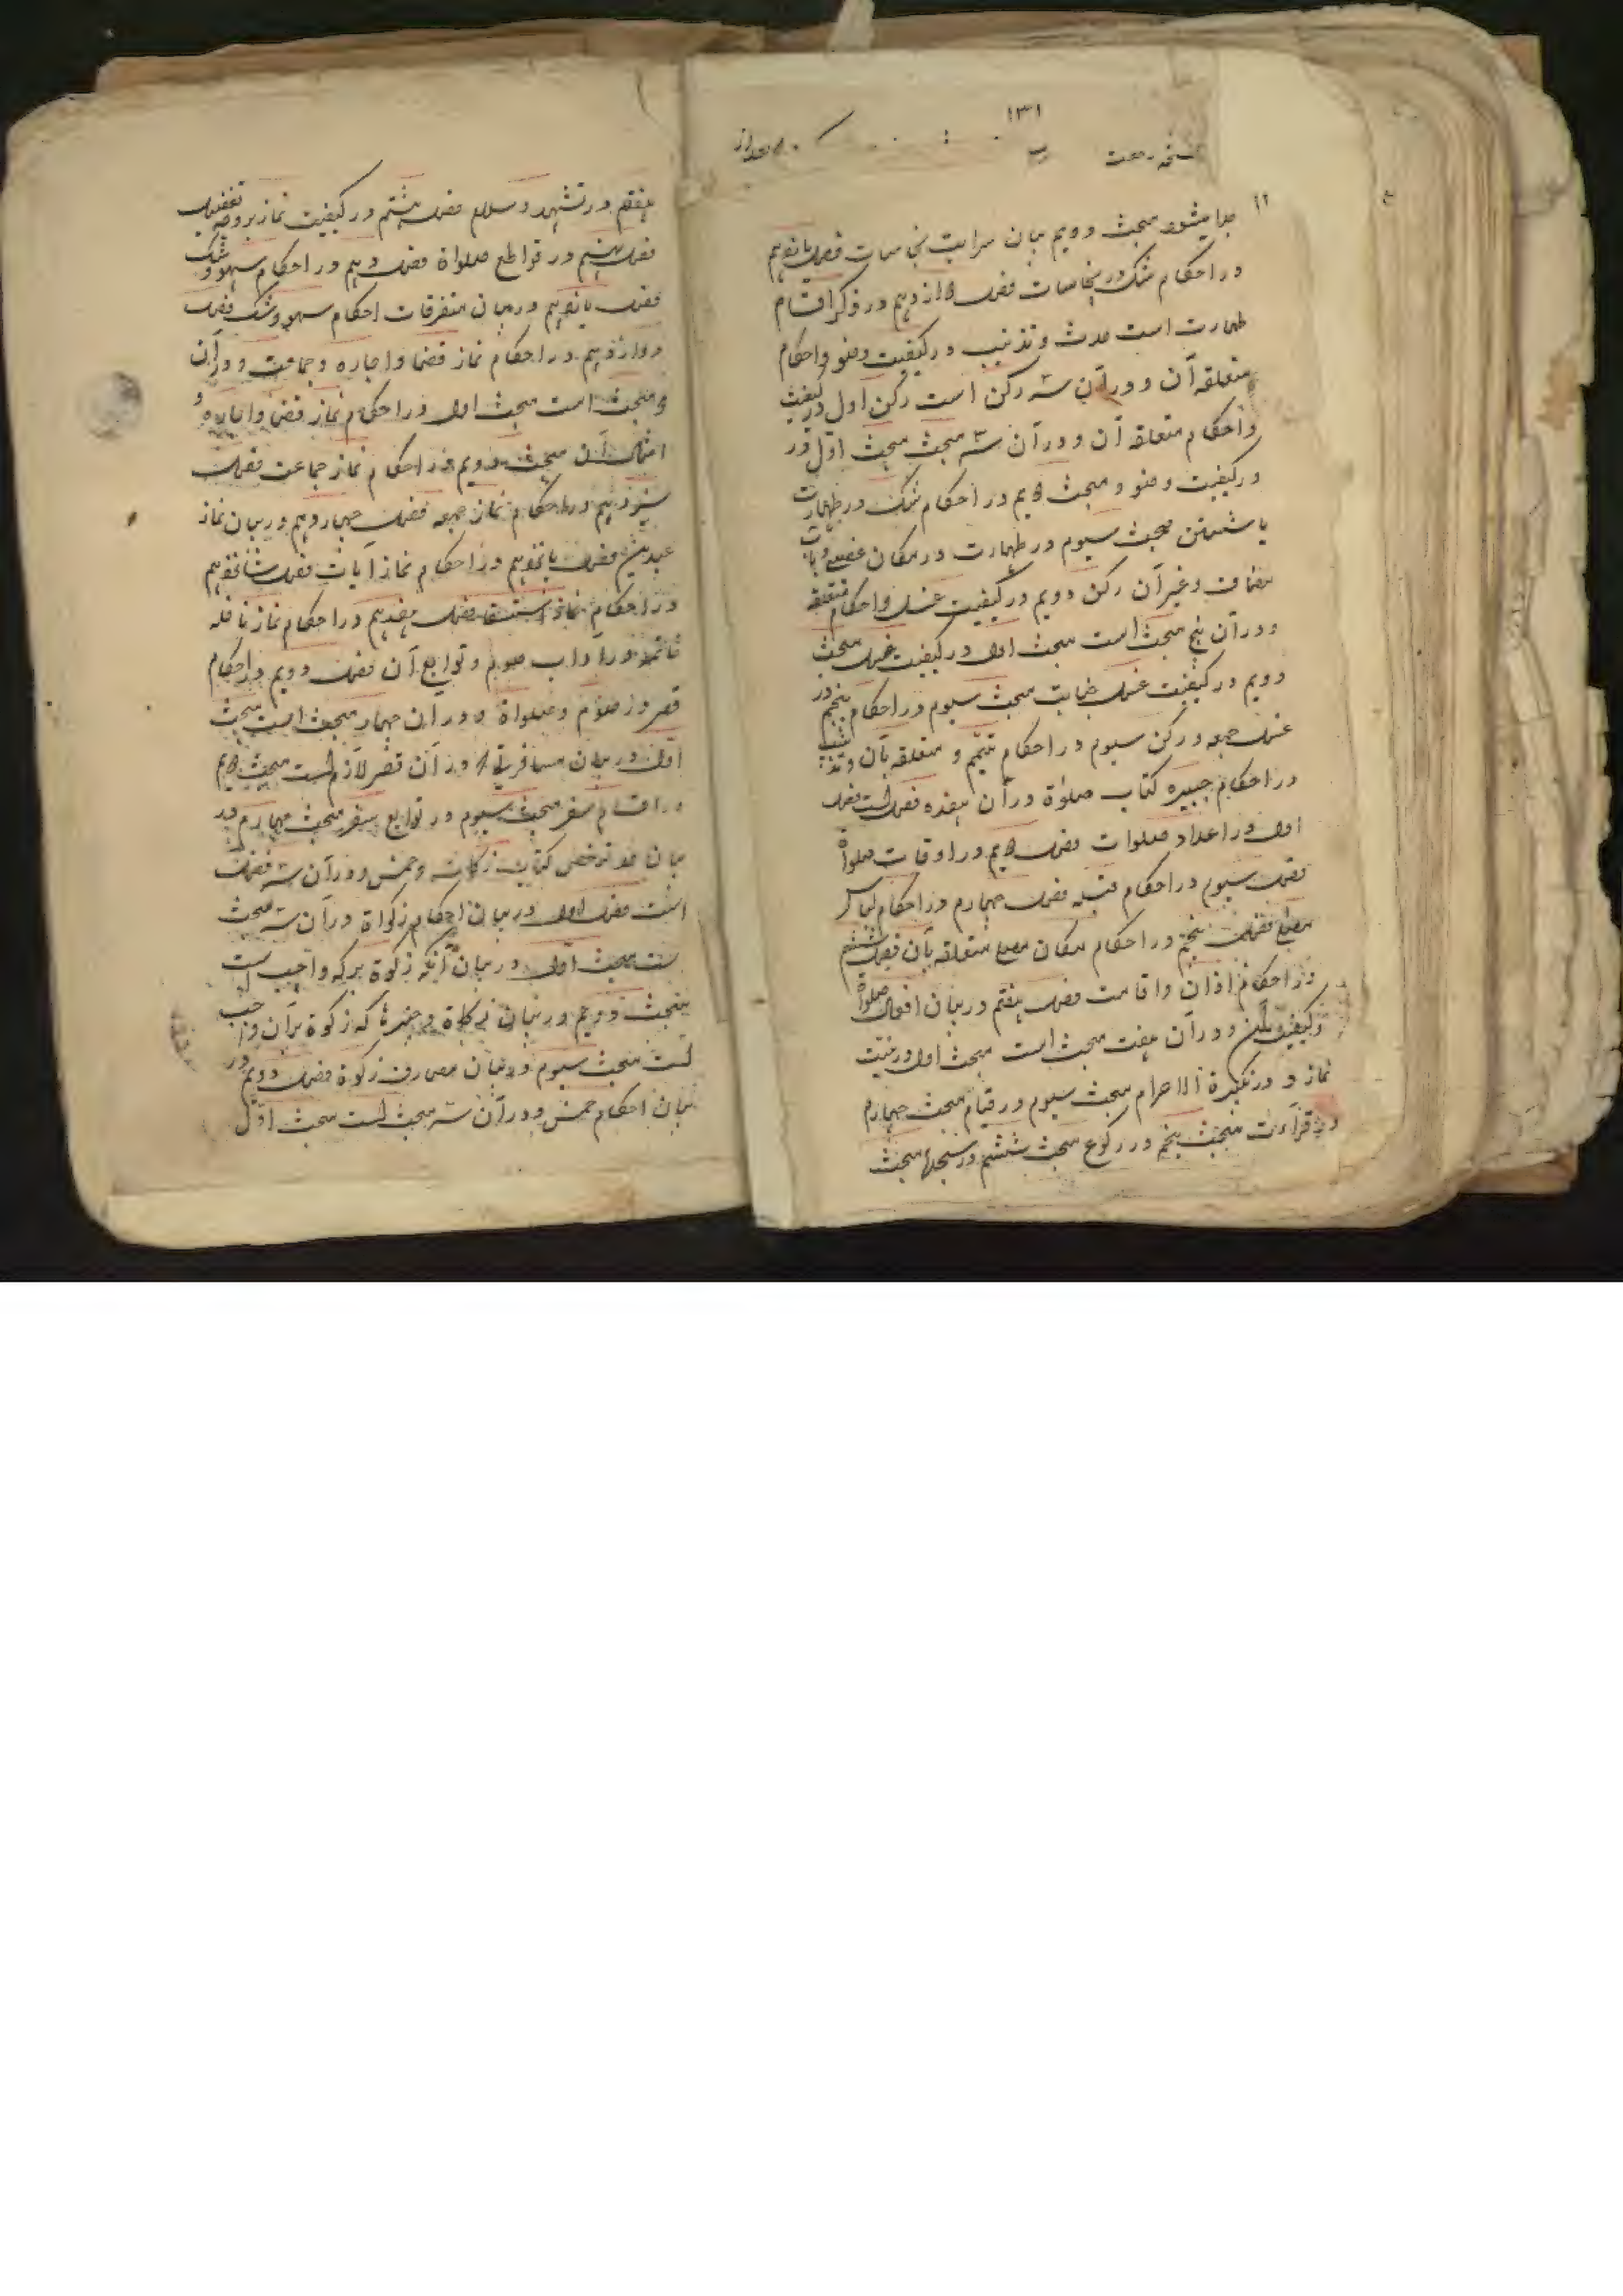 ۱۳۱
جدا میشود مبحث دویم بیان سرایت نجاسات فصل یانزدهم
در احکام شک در نجاسات فصل دوازدهم در ذکر اقسام
طهارت است حدث و تذنیب در کیفیت وضو و احکام
متعلقه آن و در آن سه رکن است رکن اول در کیفیت
و احکام متعلقه آن و در آن سه مبحث مبحث اول در
در کیفیت وضو و مبحث دویم در احکام شک در طهارت
یا شستن مبحث سیوم در طهارت در مکان غصبی و بآب
مضاف و غیر آن رکن دویم در کیفیت غسل و احکام متعلقه
و در آن پنج مبحث است مبحث اول در کیفیت غسل مبحث
دویم در کیفیت غسل جنابت مبحث سیوم در احکام پنجم در
غسل جمعه و رکن سیوم در احکام تیمم و متعلقه بآن و تذنیب
در احکام جبیره کتاب صلوة در آن هفده فصل است فصل
اول در اعداد صلوات فصل دویم در اوقات صلوة
فصل سیوم در احکام قبله فصل چهارم در احکام لباس
مصلی فصل پنجم در احکام مکان مصلی متعلقه بآن فصل ششم
در احکام اذان و اقامت فصل هفتم در بیان افعال صلوة
و کیفیت آن و در آن هفت مبحث است مبحث اول در نیت
نماز و در تکبیرة الاحرام مبحث سیوم در قیام مبحث چهارم
در قرآءت مبحث پنجم در رکوع مبحث ششم در سجده مبحث
هفتم در تشهد و سلام فصل هشتم در کیفیت نماز بروجه تفضیل
فصل نهم در قواطع صلواة فصل دهم در احکام سهو و شک
فصل یانزدهم در بیان متفرقات احکام سهو و شک فصل
دوازدهم در احکام نماز قضا و اجاره و جماعت و در آن
دو مبحث است مبحث اول در احکام نماز قضا و اجاره و
امثال آن مبحث دویم در احکام نماز جماعت فصل
سیزدهم در احکام نماز جمعه فصل چهاردهم در بیان نماز
عیدین فصل پانزدهم در احکام نماز آیات فصل شانزدهم
در احکام نماز استسقا فصل هفدهم در احکام نماز نافله
خاتمه در آداب صوم و توابع آن فصل دویم در احکام
قصر در صوم و صلواة و در آن چهار مبحث است مبحث
اول در بیان مسافرتی که در آن قصر لازم است مبحث دویم
در اقسام سفر مبحث سیوم در توابع سفر مبحث چهارم در
بیان حد ترخص کتاب زکات و خمس و در آن سه فصل
است فصل اول در بیان احکام زکواة در آن سه مبحث
ست مبحث اول در بیان آنکه زکوة بر که واجب است
مبحث دویم در بیان زکوة و چیزها که زکوة بر آن واجب
است مبحث سیوم در بیان مصارف زکوة فصل دویم در
بیان احکام خمس و در آن سه مبحث است مبحث اول